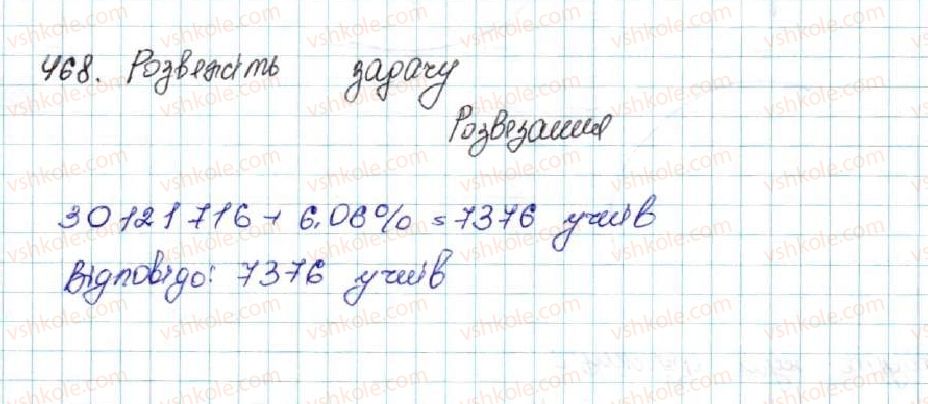 468. Розвежіть задачу
Розвезання
30121716 + 6.06% = 7376 учнів
Відповідь: 7376 учнів